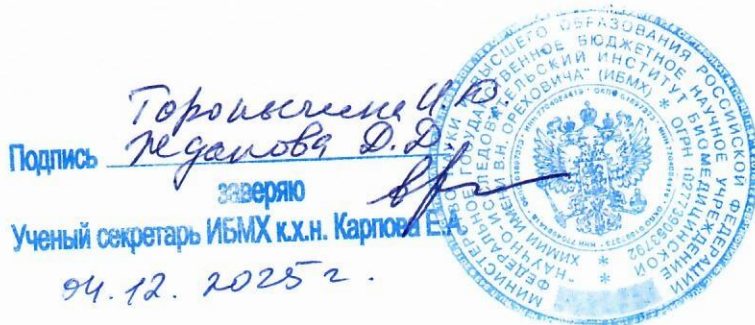 Торопыгина И.Ю.
Подпись Жданова Д.Д.
заверяю
Ученый секретарь ИБМХ к.х.н. Карпова Е.А.
04.12.2025 г.
МИНИСТЕРСТВО НАУКИ И ВЫСШЕГО ОБРАЗОВАНИЯ РОССИЙСКОЙ ФЕДЕРАЦИИ
ФЕДЕРАЛЬНОЕ ГОСУДАРСТВЕННОЕ БЮДЖЕТНОЕ НАУЧНОЕ УЧРЕЖДЕНИЕ
"НАУЧНО-ИССЛЕДОВАТЕЛЬСКИЙ ИНСТИТУТ БИОМЕДИЦИНСКОЙ
ХИМИИ ИМЕНИ В.Н. ОРЕХОВИЧА" (ИБМХ) * ОГРН 1027739093792